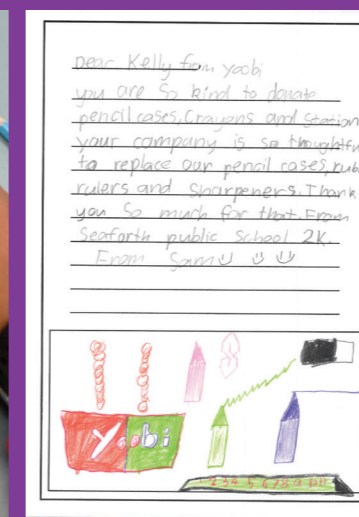 Dear Kelly from yoobi
you are so kind to donate
pencil cases, Crayons and Station
your company is so thoughtfu
to replace our pencil cases, rub
rulers and sharpeners. Thank
you so much for that. From
Seaforth public School 2K.
From Sam
Yoobi
1 2 3 4 5 6 7 8 9 10 11